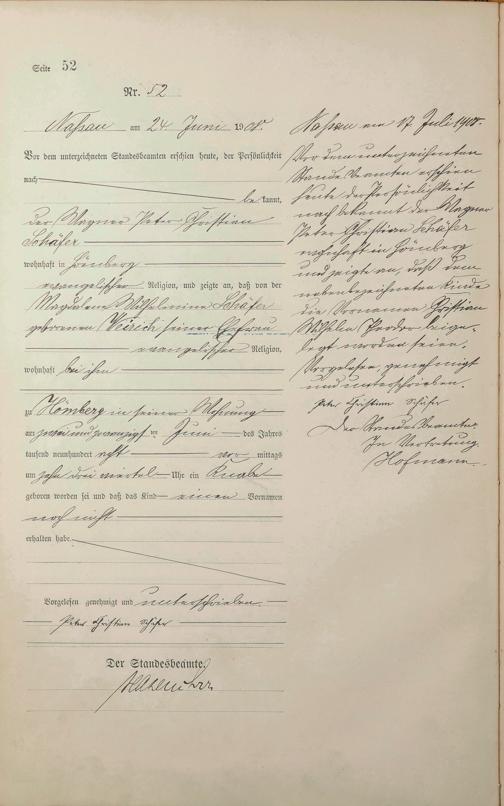 Seite 52
Nr. 52
Nassau am 24 Juni 1908.
Vor dem unterzeichneten Standesbeamten erschien heute, der Persönlichkeit
nach
be kannt,
der Wagner Peter Christian
Schäfer
wohnhaft in Hömberg
evangelischer Religion, und zeigte an, daß von der
Magdalene Wilhelmine Schäfer
geborenen seiner Ehefrau
evangelischer Religion,
wohnhaft bei ihm
zu Hömberg in seiner Wohnung
am zwei und zwanzigst en Juni des Jahres
tausend neunhundert acht vor mittags
um zehn drei viertel Uhr ein Knabe
geboren worden sei und daß das Kind einen Vornamen
noch nicht
erhalten habe.
Vorgelesen genehmigt und unterschrieben.
Peter Christian Schäfer
Der Standesbeamte.
Nassau am 17 Juli 1908.
Vor dem unterzeichneten
Standesbeamten erschien
heute der Persönlichkeit
nach bekannt der Wagner
Peter Christian Schäfer
wohnhaft in Hömberg
und zeigte an, daß dem
nebenbezeichneten Kinde
die Vornamen Christian
Wilhelm Theodor beige-
legt worden seien.
Vorgelesen genehmigt
und unterschrieben.
Peter Christian Schäfer
Der Standesbeamte
In Vertretung.
Hofmann